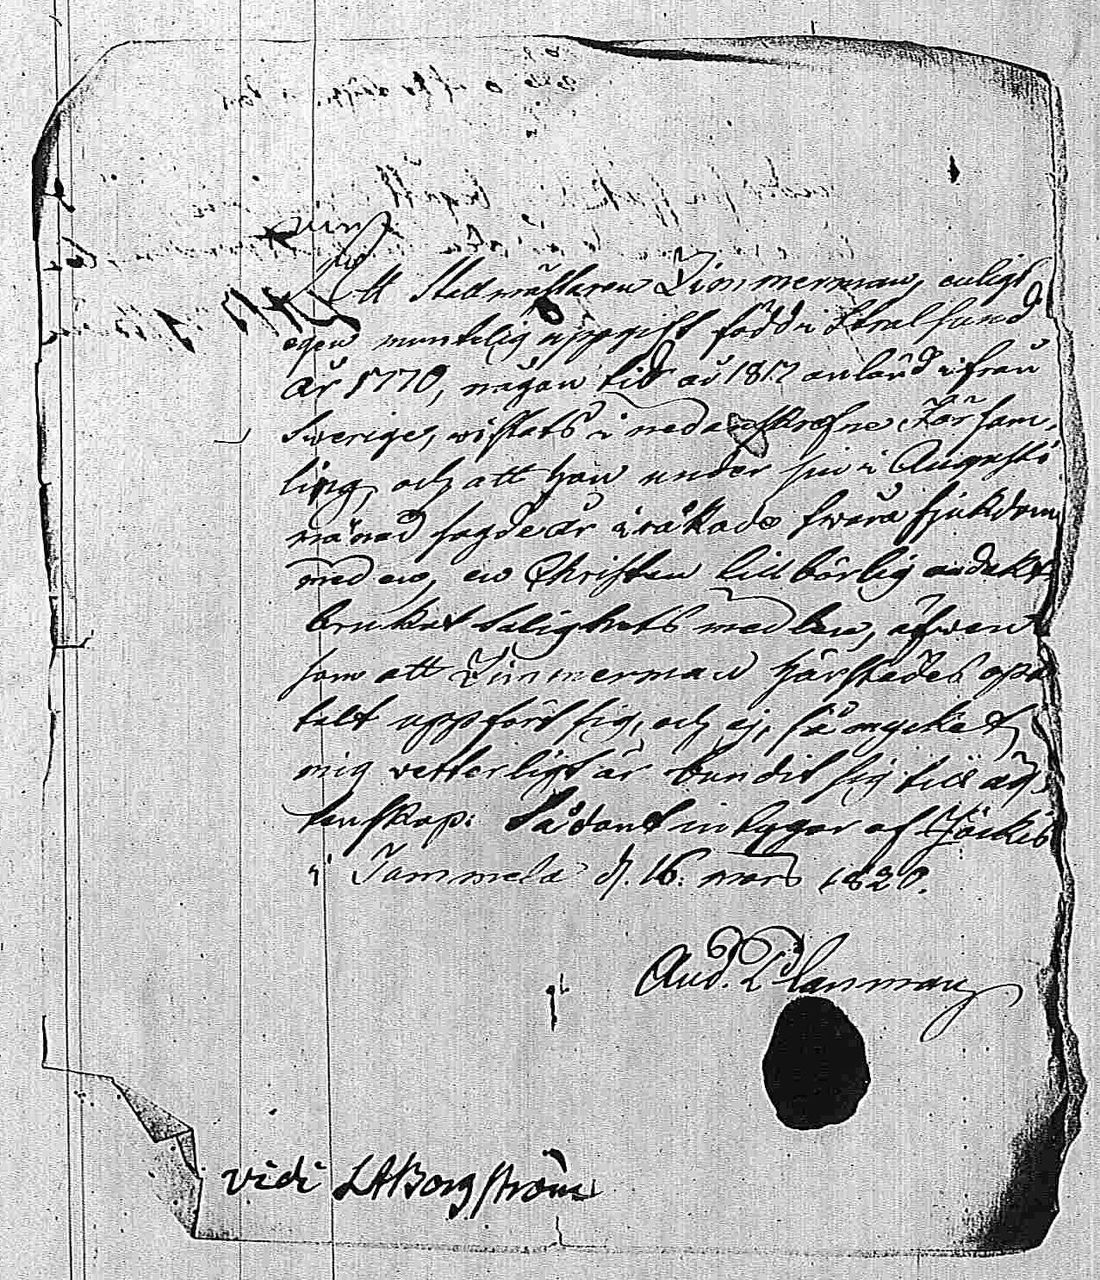 Att Stallmästaren Zimmerman, enligt
egen muntelig uppgift född i Stralsund
år 1770, någon tid år 1817 anländ ifrån
Swerige, wistats i nedanskrefne Försam-
ling, och att han under sin i Augusti
månad sagde år iråkade swåra sjukdom
med en, en Christen tillbörlig andakt
brukat salighets medlen, äfwen
som att Zimmerman härstädes
uppfört sig, och ej, så mycket
mig vetterligt är bundit sig till äg-
tenskap: Sådant intygar af Jockis
i Tammela d. 16. mars 1820.
And. Planman
vidi LABorgström